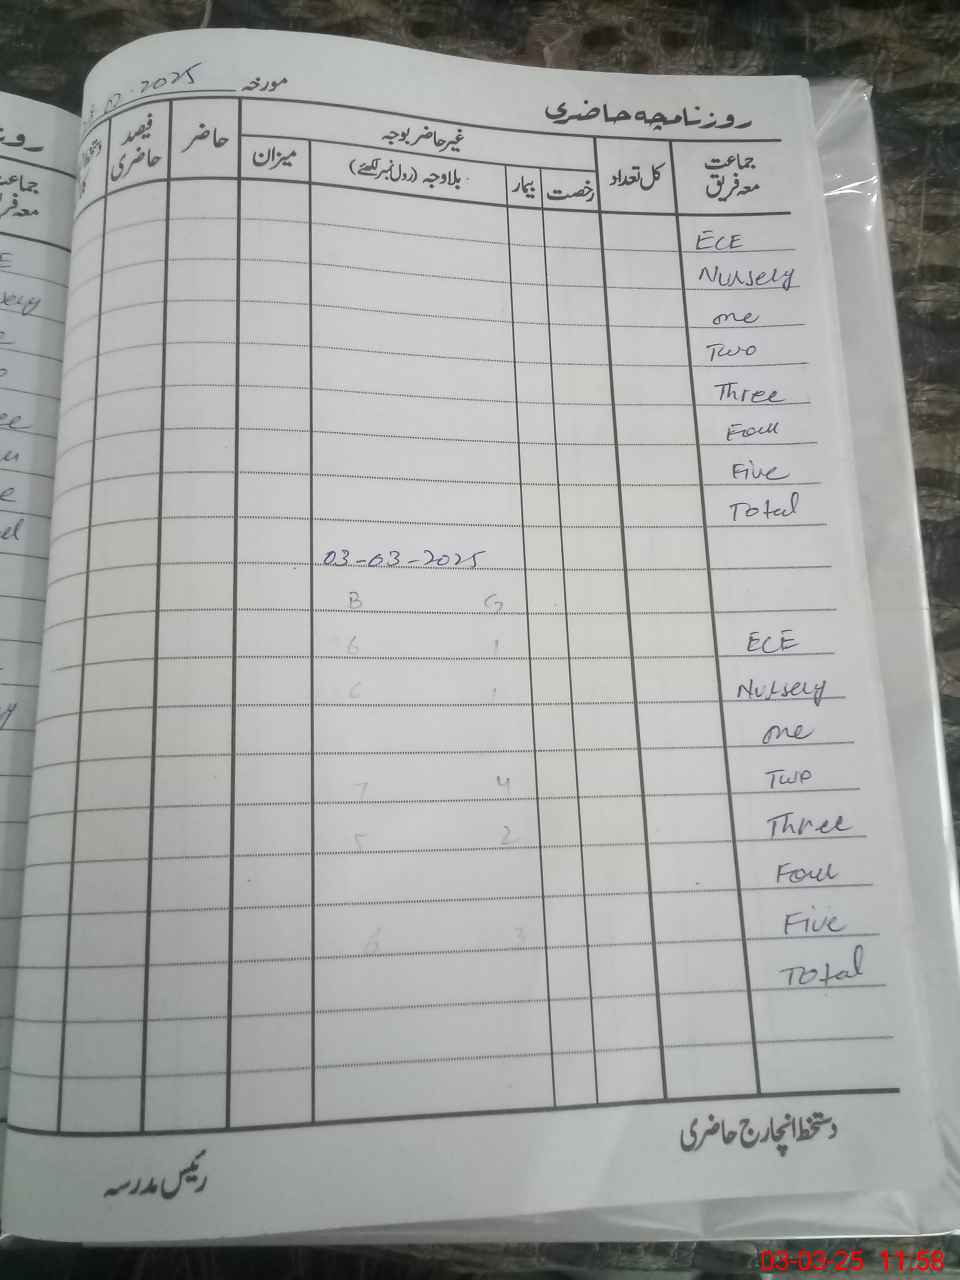 روزنامچہ حاضری
مورخہ 2025
جماعت معہ فریق کل تعداد غیر حاضر بوجہ حاضر فیصد حاضری
رخصت بیمار بلاوجہ (رول نمبر لکھئے) میزان
ECE
Nursery
one
Two
Three
Four
Five
Total
03-03-2025
B G
6 1 ECE
6 1 Nursery
one
7 4 Two
5 2 Three
Four
3 Five
Total
دستخط انچارج حاضری
رئیس مدرسہ
03-03-25 11:58